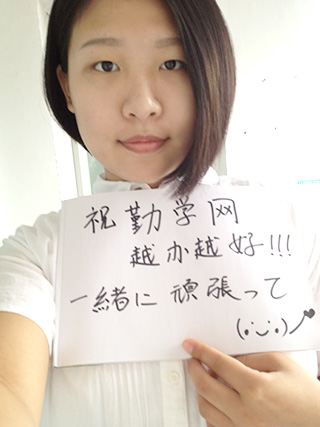 祝勤学网
越办越好!!!
一緒に頑張って
(•‿•)ノ♥